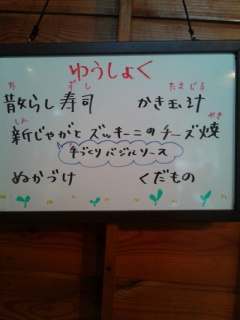 ゆうしょく
ち ずし たまじる
散らし寿司 かき玉汁
しん やき
新じゃがとズッキーニのチーズ焼
手づくりバジルソース
ぬかづけ くだもの